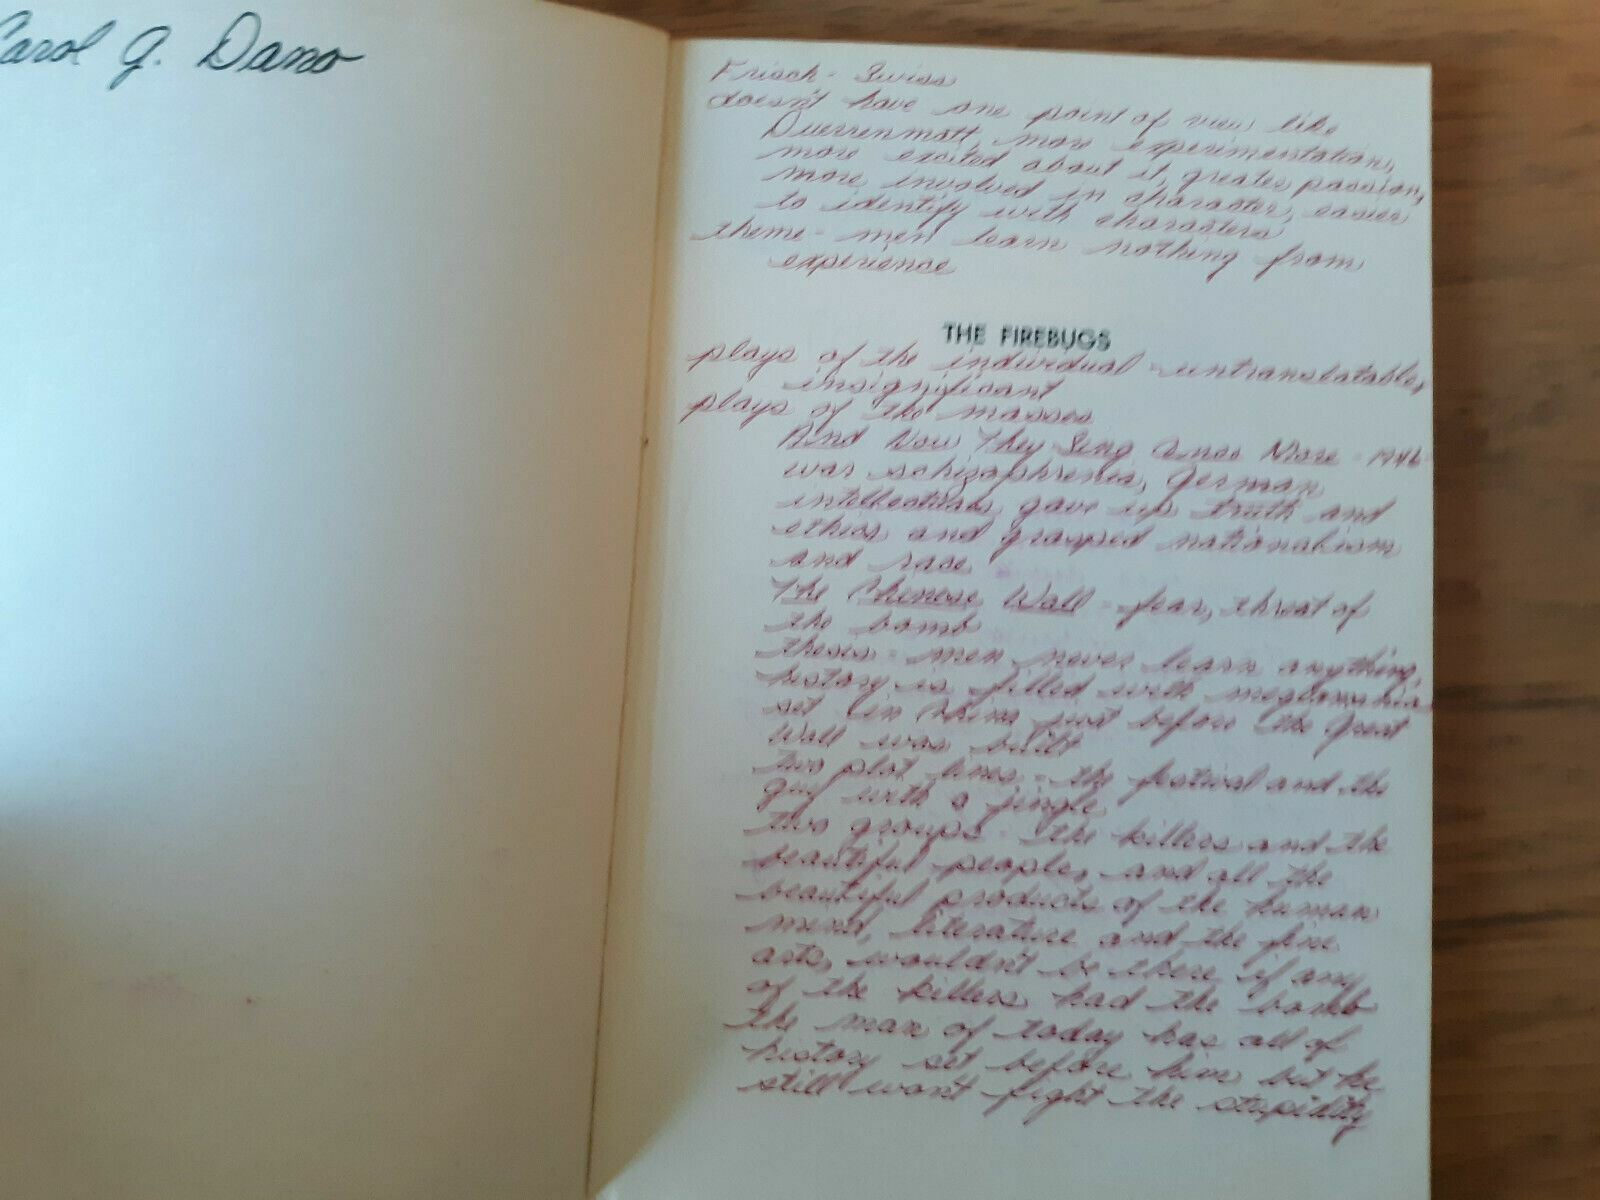 Carol G. Dano
Frisch - Swiss
doesn't have one point of view like
Duerrenmatt, more experimentation,
more excited about it, greater passion,
more involved in character, easier
to identify with characters
theme - men learn nothing from
experience
THE FIREBUGS
plays of the individual - untranslatable,
insignificant
plays of the masses
And Now They Sing Once More - 1946
was schizophrenia, German
intellectuals gave up truth and
ethics and grasped nationalism
and race
The Chinese Wall - fear, threat of
the bomb
thesis - men never learn anything,
history is filled with
set in China just before the Great
Wall was built
two plot lines - the festival and the
guy with a jingle
two groups - the killers and the
beautiful people, and all the
beautiful products of the human
mind, literature and the fine
arts, wouldn't be there if any
of the killers had the bomb
the man of today has all of
history set before him but he
still won't fight the stupidity